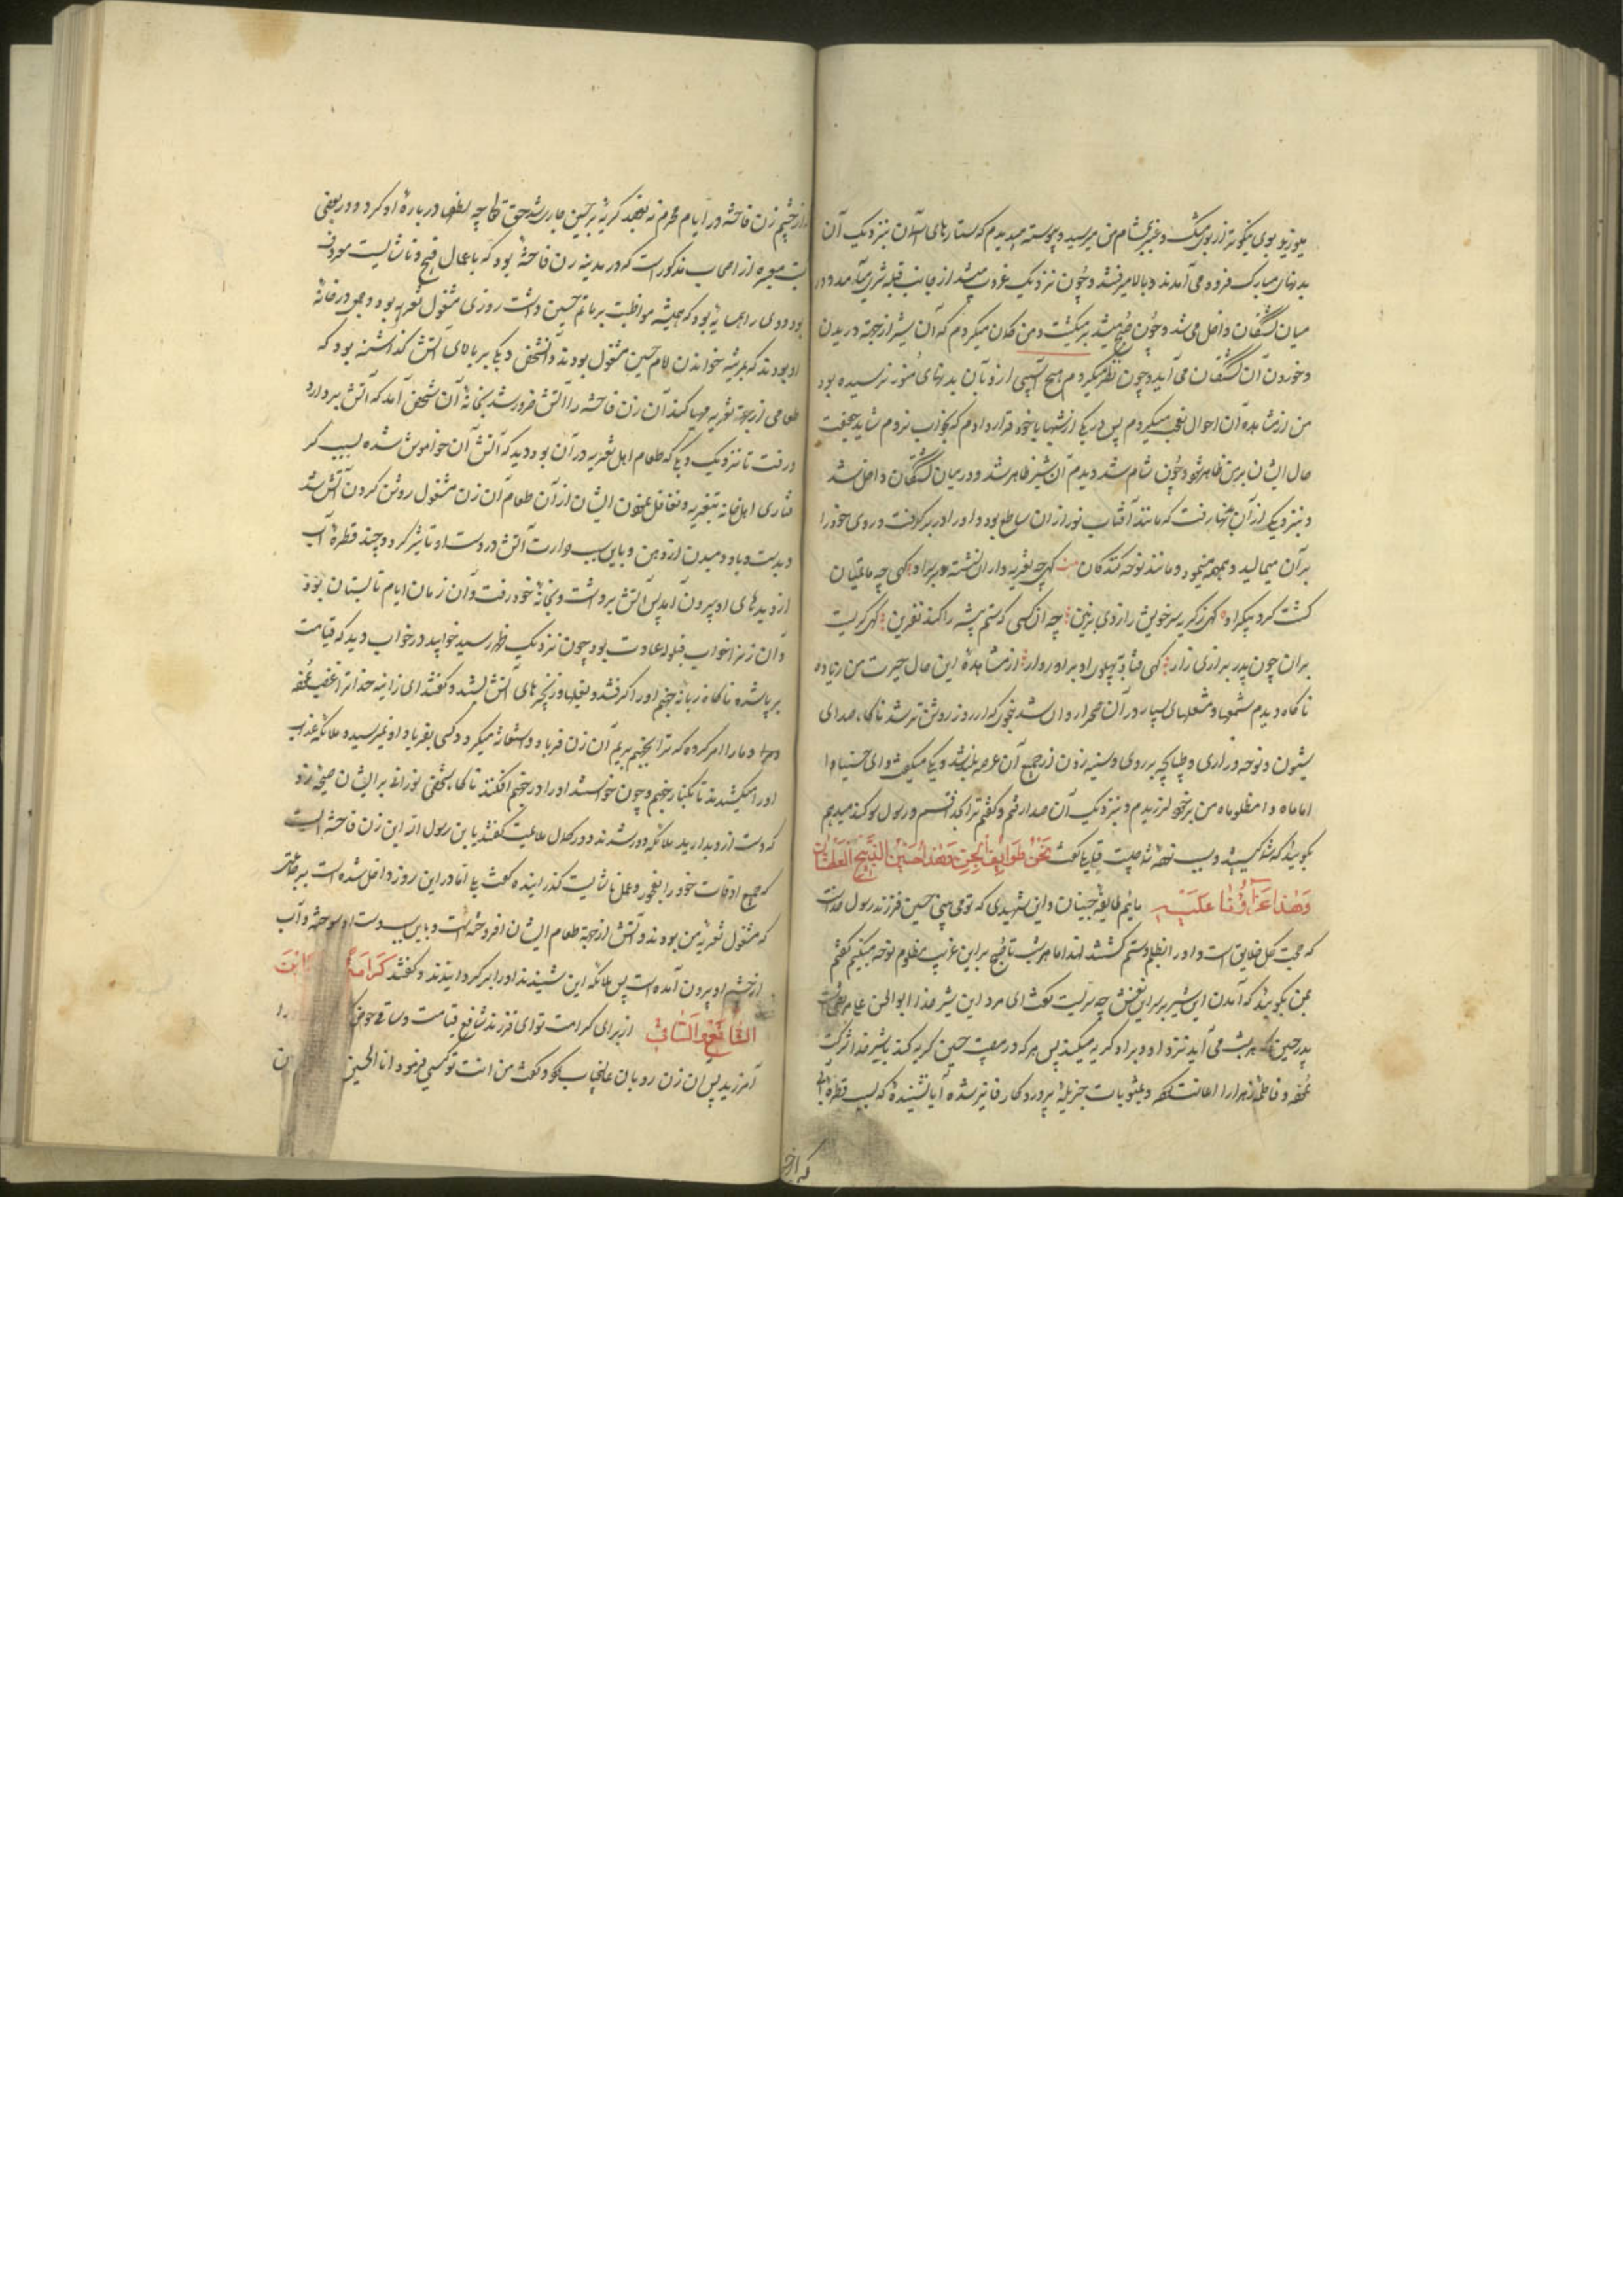 میوزید بوی نیکوتر از بوی مشک و عنبر بمشام من میرسید و پیوسته میدیدم که ستارهای آسمان بنزدیک آن
بدنهای مبارک فرود می آمدند و بالا میرفتند و چون نزدیک غروب میشد از جانب قبله شیری میآمد و در
میان کشتگان داخل می شد و چون صبح میشد برمیگشت و من گمان میکردم که آن شیر از جهة دریدن
و خوردن آن کشتگان می آید و چون نظر میکردم هیچ آسیبی از و بآن بدنهای منور نرسیده بود
من از مشاهده آن احوال تعجب میکردم پس در یکی از شبها با خود قرار دادم که بخواب نروم شاید حقیقت
حال ایشان بر من ظاهر شود و چون شام شد دیدم آن شیر ظاهر شد و در میان کشتگان داخل شد
و بنزدیک یکی از آن بدنها رفت که مانند آفتاب نور از ان ساطع بود و او را در بر گرفت و روی خود را
بر آن میمالید و همهمه مینمود و مانند نوحه کنندگان کهی چه تعزیه داران نشسته در بر او کهی چه ماتمیان
کشت کرد پیکر او کهی ز کریه سر خویش را زدی بزمین چه آن کسی که ستم پیشه را کند نفرین کهی کریست
بران چون پدر بزاری زار کهی فتاد به پهلوی او برادروار از مشاهدۀ این حال حیرت من زیاده
ناکاه دیدم شمعها و مشعلهای بسیار در آن صحرا روان شد بنحوی که از روز روشن تر شد ناکاه صدای
شیون و نوحه و زاری و طپانچه بر روی و سینه زدن از جمیع آن عرصه بلند شد و یکی میکفت وای حسینا وا
اماماه وا مظلوماه من بر خود لرزیدم و بنزدیک آن صدا رفتم و کفتم ترا بخدا قسم و رسول سوکند میدهم
بکوئید که شما کیستید و سبب نوحه شما چیست کفت نَحْنُ طَوَائِفُ الْجِنِّ وَهٰذَا حُسَيْنُ الذَّبِيحُ الْعَطْشَانُ
وَهٰذَا عَزَاؤُنَا عَلَيْهِ مائیم طایفۀ جنیان و این شهیدی که تو می بینی حسین فرزند رسول خداست
که حجت کل خلایق است و او را بظلم و ستم کشتند لهذا ما هر شب تا صبح بر این غریب مظلوم نوحه میکنیم کفتم
بمن بکوئید که آمدن این شیر بر سر این نعش چه سریست کفت ای مرد این شیر خدا ابوالحسن علی مرتضی است
پدر حسین که هر شب می آید نزد او و بر او کریه میکند پس هر که در مصیبت حسین کریه کند با شیر خدا شرکت
نموده و فاطمۀ زهرا را اعانت نموده و بمثوبات جزیله پروردکار فایز شده آیا نشنیدۀ که بسبب قطرۀ آبی
که از چشم
از چشم زن فاحشه در ایام محرم نه بقصد کریه بر حسین جاری شد حق تعالی چه لطفها در بارۀ او کرد و در بعضی
کتب معتبره از اصحاب مذکور است که در مدینه زن فاحشۀ بود که باعمال قبیح و ناشایست معروف
بود و وی را همسایه بود که همیشه مواظبت بر ماتم حسین داشت روزی مشغول تعزیه بود و جمعی در خانۀ
او بودند که بمرثیه خواندن امام حسین مشغول بودند و آنشخص دیکی بر بالای آتش کذاشته بود که
طعامی از جهة تعزیه مهیا کند آن زن فاحشه را آتش ضرور شد بخانۀ آن شخص آمد که آتش بردارد
و رفت تا نزدیک دیکی که طعام اهل تعزیه در آن بود دید که آتش آن خاموش شده بسبب کر
فتاری اهل خانه بتعزیه و تغافل نمودن ایشان از آن طعام آن زن مشغول روشن کردن آتش شد
و بدست و باد و دمیدن از دهن و باین سبب حرارت آتش در دست او تأثیر کرد و چند قطرۀ آب
از دیدهای او بیرون آمد پس آتش برداشت و بخانۀ خود رفت و آن زمان ایام تابستان بود
و آن زن را خواب قیلوله عادت بود چون نزدیک ظهر رسید خوابید در خواب دید که قیامت
برپا شده ناکاه زبانیۀ جهنم او را کرفتند و بغلها و زنجیرهای آتش بستند و کفتند ای زانیه خدا ترا غضب نموده
و ما را امر کرده که ترا بجهنم بریم آن زن فریاد و استغاثه میکرد و کسی بفریاد او نمیرسید و ملائکۀ عذاب
او را میکشیدند تا بکنار جهنم و چون خواستند او را در جهنم افکنند ناکاه شخصی نورانی بر ایشان صیحۀ زد
که دست ازو بدارید ملائکه دور شدند و در کمال ملایمت کفتند یا بن رسول الله این زن فاحشۀ است
که جمیع اوقات خود را بفجور و عمل ناشایست کذرانیده کفت بلی اما در این روز داخل شده است بر جماعتی
که مشغول تعزیۀ من بودند و آتش از جهة طعام ایشان افروخته است و باین سبب دست او سوخته و آب
از چشم او بیرون آمده است پس ملائکه این شنیدند او را بر کردانیدند و کفتند كَرَامَةً
الشَّافِعِ وَالسَّاقِي از برای کرامت تو ای فرزند شافع قیامت و ساقی حوض
آمرزید پس ان زن رو بان عالیجناب کرد و کفت من انت تو کیستی فرمود انا الحسین